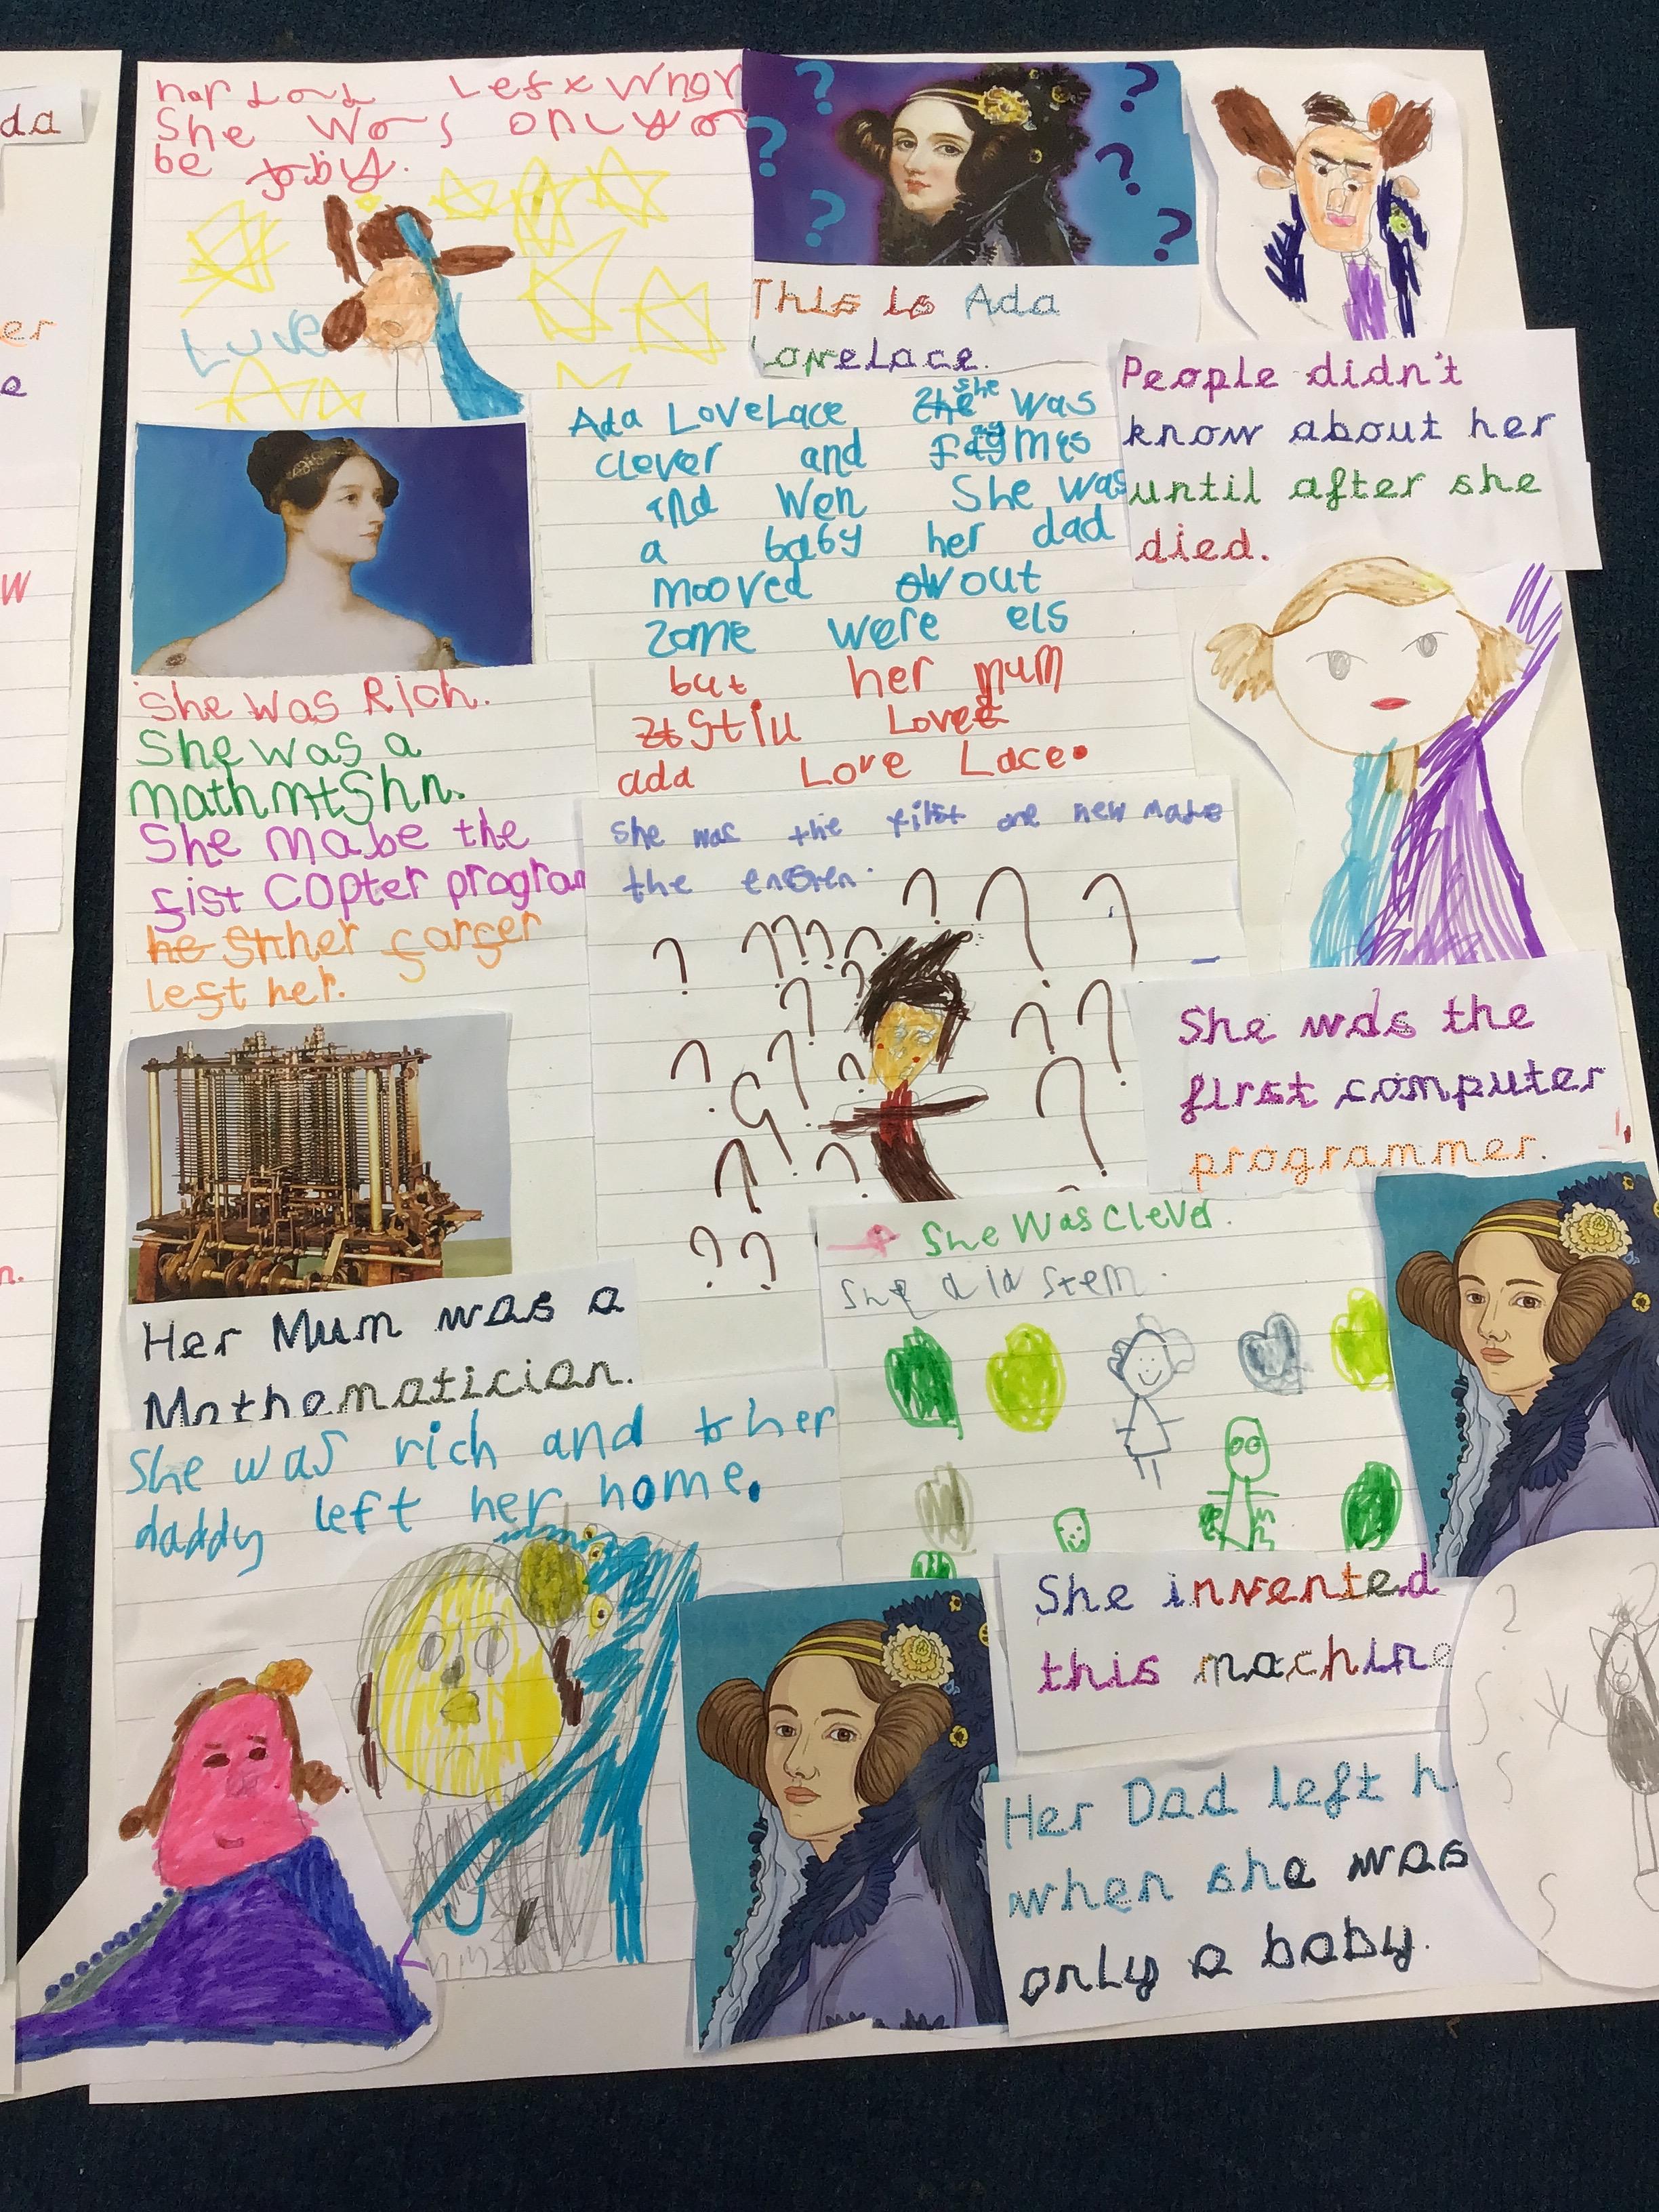 da
er
e
w
n.
She was only a
be
Luve
This is Ada
Lovelace.
People didn't
know about her
until after she
died.
Ada LoveLace she was
clever and
and wen She was
a baby her dad
mooved out
zome were els
but her mum
Still Love
ada Love Lace.
She was Rich.
She was a
mathmtShn.
She mabe the
fist COPter program
her farfer
left her.
She was the first one new made
the
She was the
first computer
programmer.
Her Mum was a
Mathematician.
She was clever.
She did stem.
She was rich and her
daddy left her home.
She invented
this machine
Her Dad left h
when she was
only a baby.